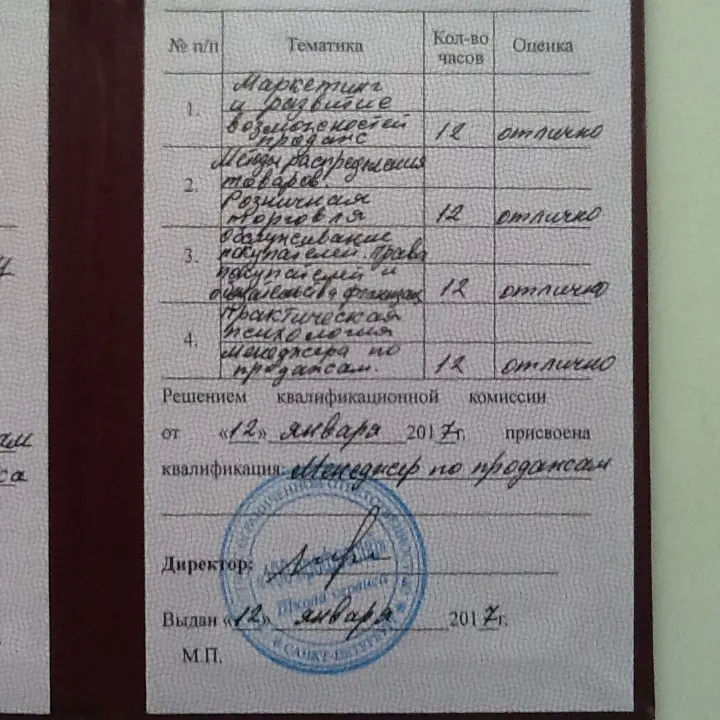 № п/п Тематика Кол-во часов Оценка
Маркетинг
и развитие
1.
возможностей 12 отлично
продаж
Методы распределения
2. товаров.
Розничная
торговля 12 отлично
Обслуживание
3. покупателей. Права
покупателей и
12 отлично
Практическая
психология
4.
менеджера по
продажам. 12 отлично
Решением квалификационной комиссии
от «12» января 2017г. присвоена
квалификация: Менеджер по продажам
Директор:
Школа сервиса
Выдан «12» января 2017г.
САНКТ-ПЕТЕРБУРГ
М.П.
ам
са